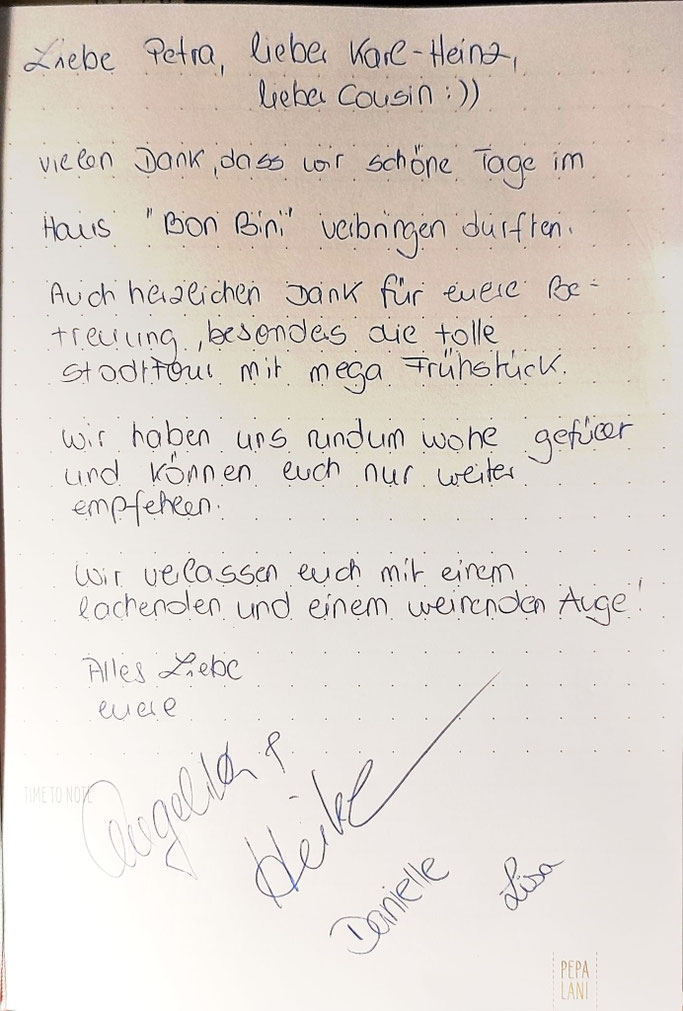 Liebe Petra, lieber Karl-Heinz,
lieber Cousin :))
vielen Dank, dass wir schöne Tage im
Haus "Bon Bini" verbringen durften.
Auch herzlichen Dank für euere Be-
treuung, besonders die tolle
Stadttour mit mega Frühstück.
Wir haben uns rundum wohl gefühlt
und können euch nur weiter
empfehlen.
Wir verlassen euch mit einem
lachenden und einem weinenden Auge!
Alles Liebe
euere
Angelika &
Heike
Danielle Lisa
TIME TO NOTE
PEPA
LANI